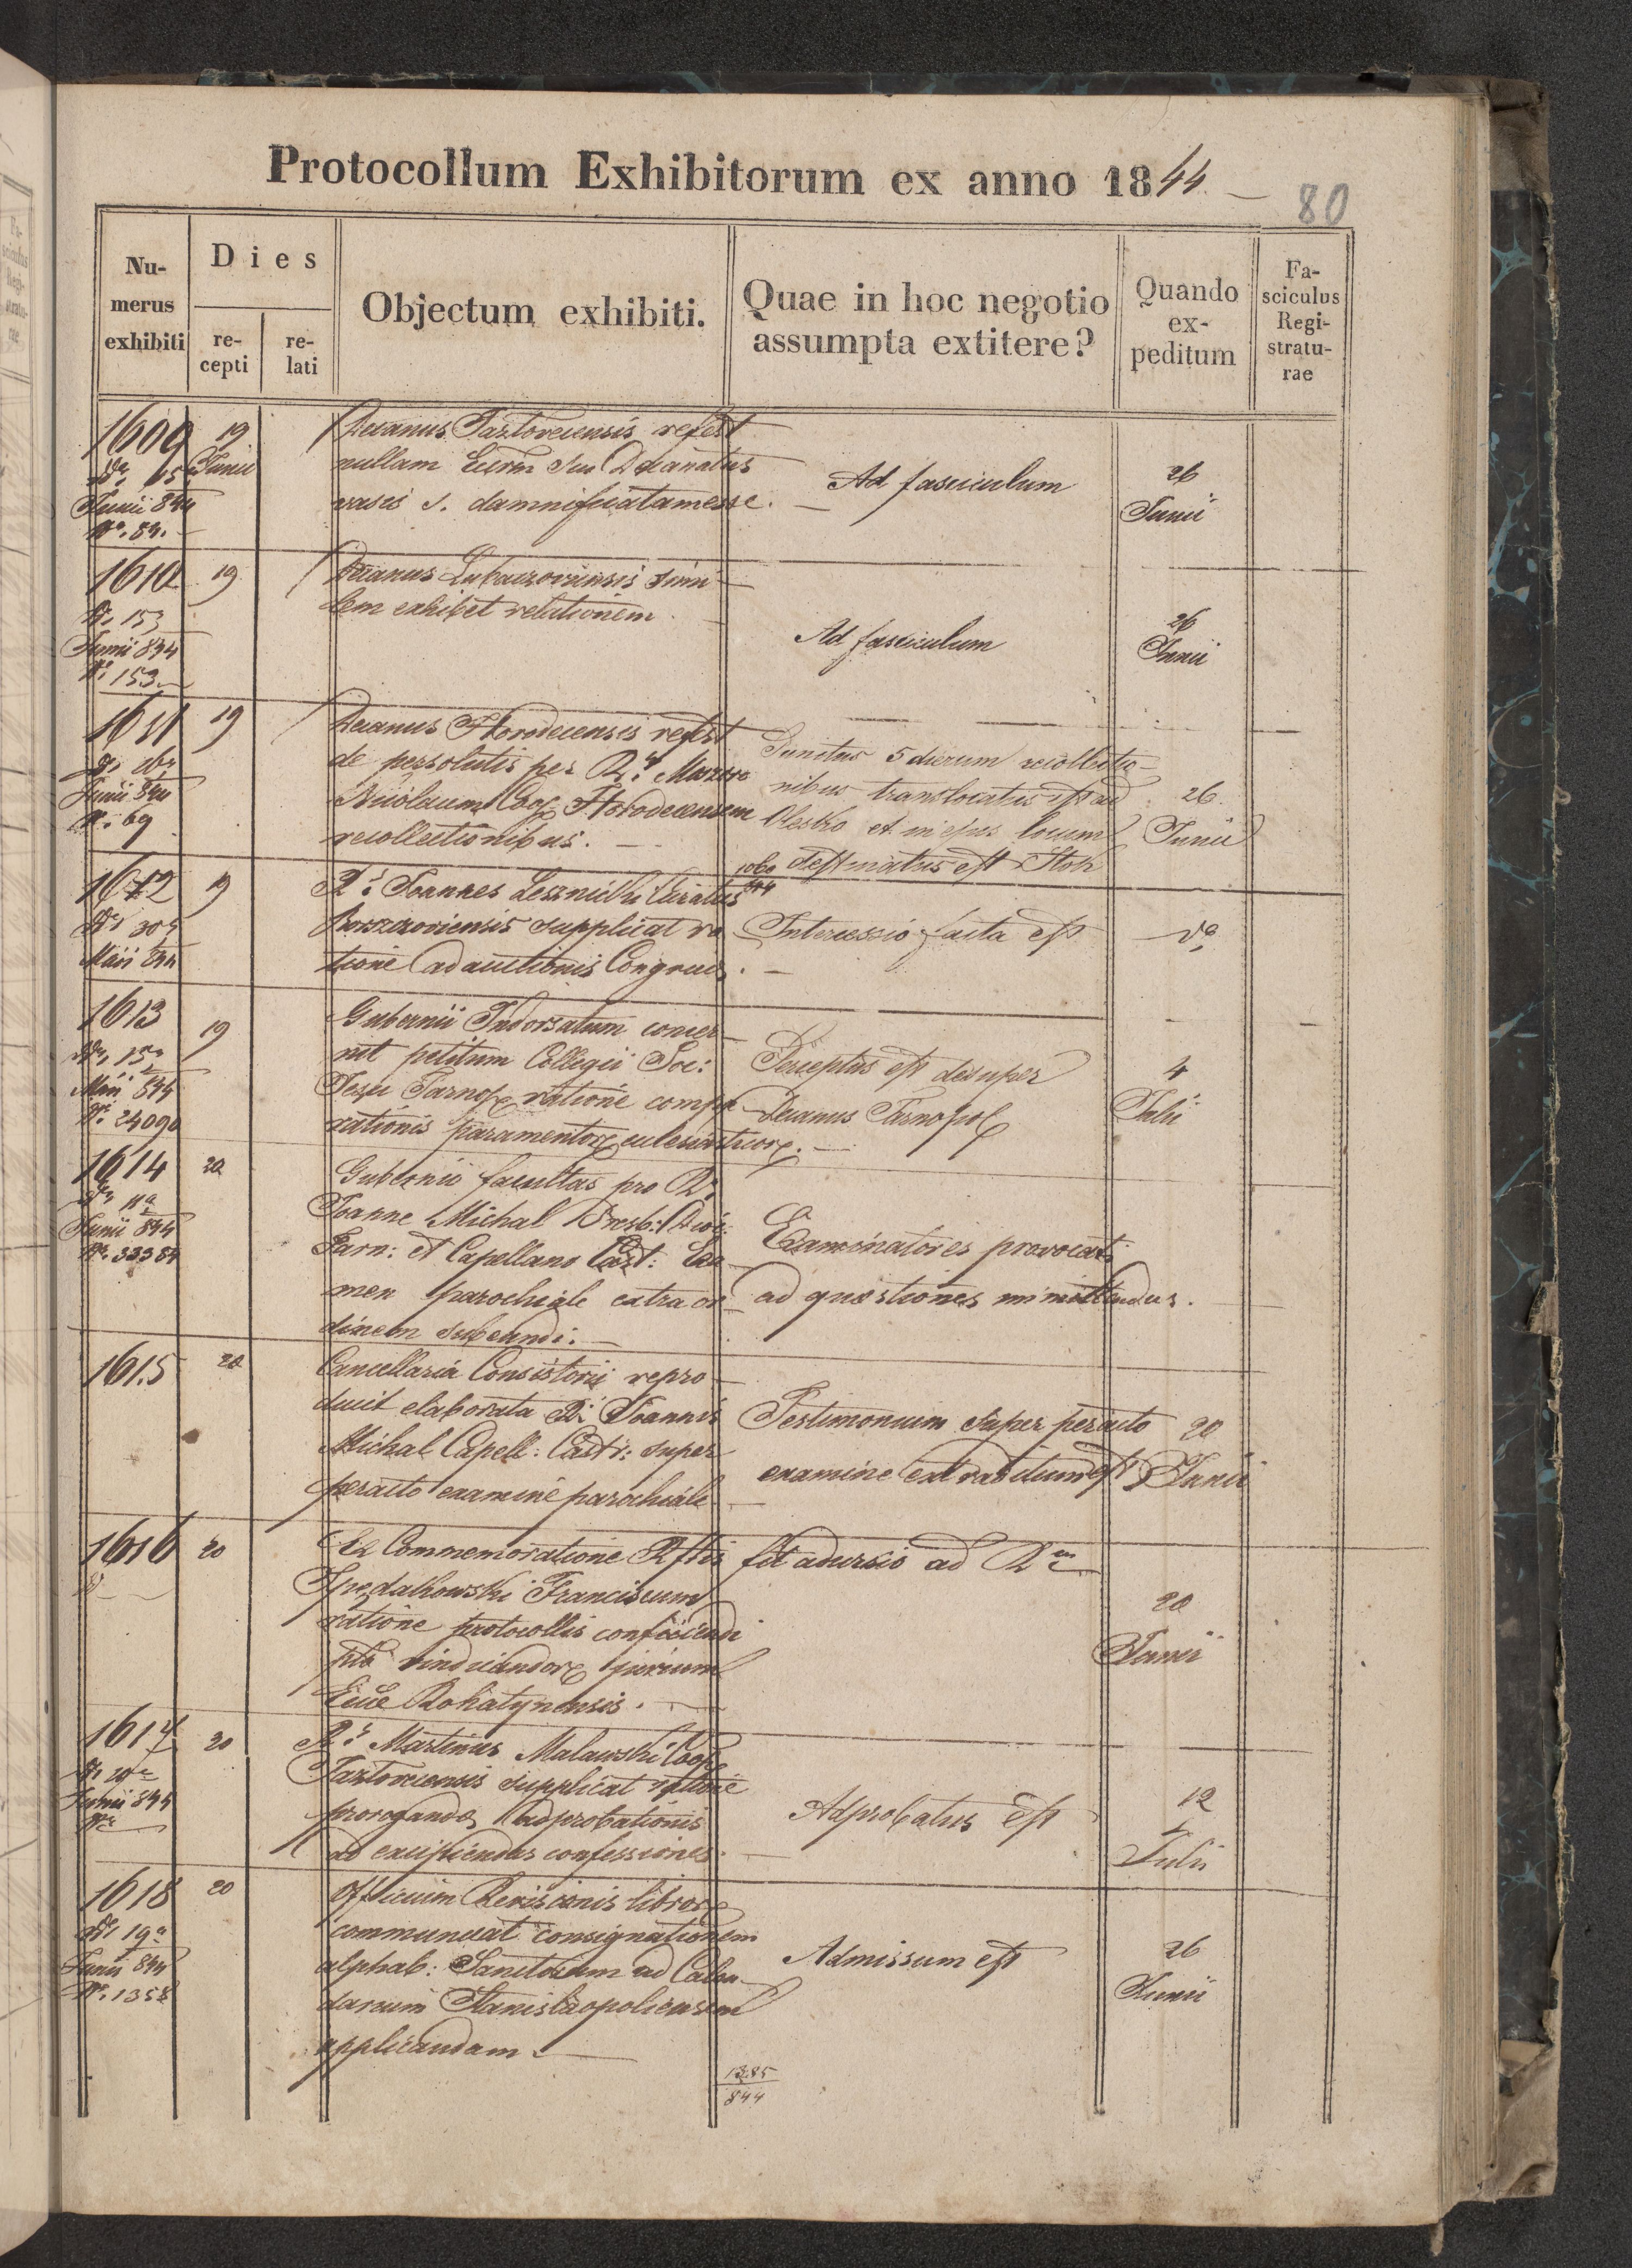 Protocollum Exhibitorum ex anno 1844
80
Numerus exhibiti
Dies
recepti
relati
Objectum exhibiti.
Quae in hoc negotio assumpta extitere?
Quando expeditum
Fasciculus Registraturae
1609
19 Junii
Junii 844
Nro. 84.
Decanus Jaztovecensis refert
nullam Eccm sui Decanatus
vasis s. damnificatam esse.
Ad fasciculum
26
Junii
1610
19
Junii 844
N. 153
Decanus Lubaczoviensis simi-
lem exhibet relationem.
Ad fasciculum
26
Junii
1611
19
Junii 844
N. 69
Decanus Horodecensis refert
de persolutis per R.
Nicolaum Coop Horodecensem
recollectionibus.
Punitus 5 dierum recollectio-
nibus translocatus est ad
Olesko et in ejus locum
destinatus est Stok
26
Junii
1060
844
1612
19
Maii 844
R. Joannes Curatus
supplicat ra-
tione adauctionis Congruae.
Intercessio facta est
1613
19
Maii 844
N. 24090
Gubernii Indorsatum concer-
nit petitum Collegii Soc:
Jesu Tarnop ratione compa-
rationis paramentor ecclesiasticor.
Praeceptus est desuper
Decanus Tarnopol
4
Julii
1614
20
Junii 844
N. 33384
Gubernio facultas pro R.
Joanne Michal Presb: Dioe:
Tarn: et Capellano Cast: Exa-
men parochiale extra or-
dinem subeundi.
Examinatores provocati
ad quaestiones immittendas.
1615
20
Cancellaria Consistorii repro-
ducit elaborata R. Joannis
Michal Capell: Castr: super
peracto examine parochiale
Testimonium super peracto
examine extraditum est
20
Junii
1616
20
Ex Commemoratione
Franciscum
ratione protocollis conficiendi
pto vindicandor jurium
Eccae Rohatynensis.
fit adversio ad
20
Junii
1617
20
Junii 844
R. Martinus Malawski Coop
Jaztovecensis supplicat ratione
prorogandae adprobationis
ad excipiendas confessiones.
Adprobatus est
12
Julii
1618
20
19
Junii 844
N. 1358
Officium Revisionis libror
communicat consignationem
alphab: Sanctorum ad Calen-
darium Stanislaopoliensem
applicandam.
Admissum est
26
Junii
1385
844